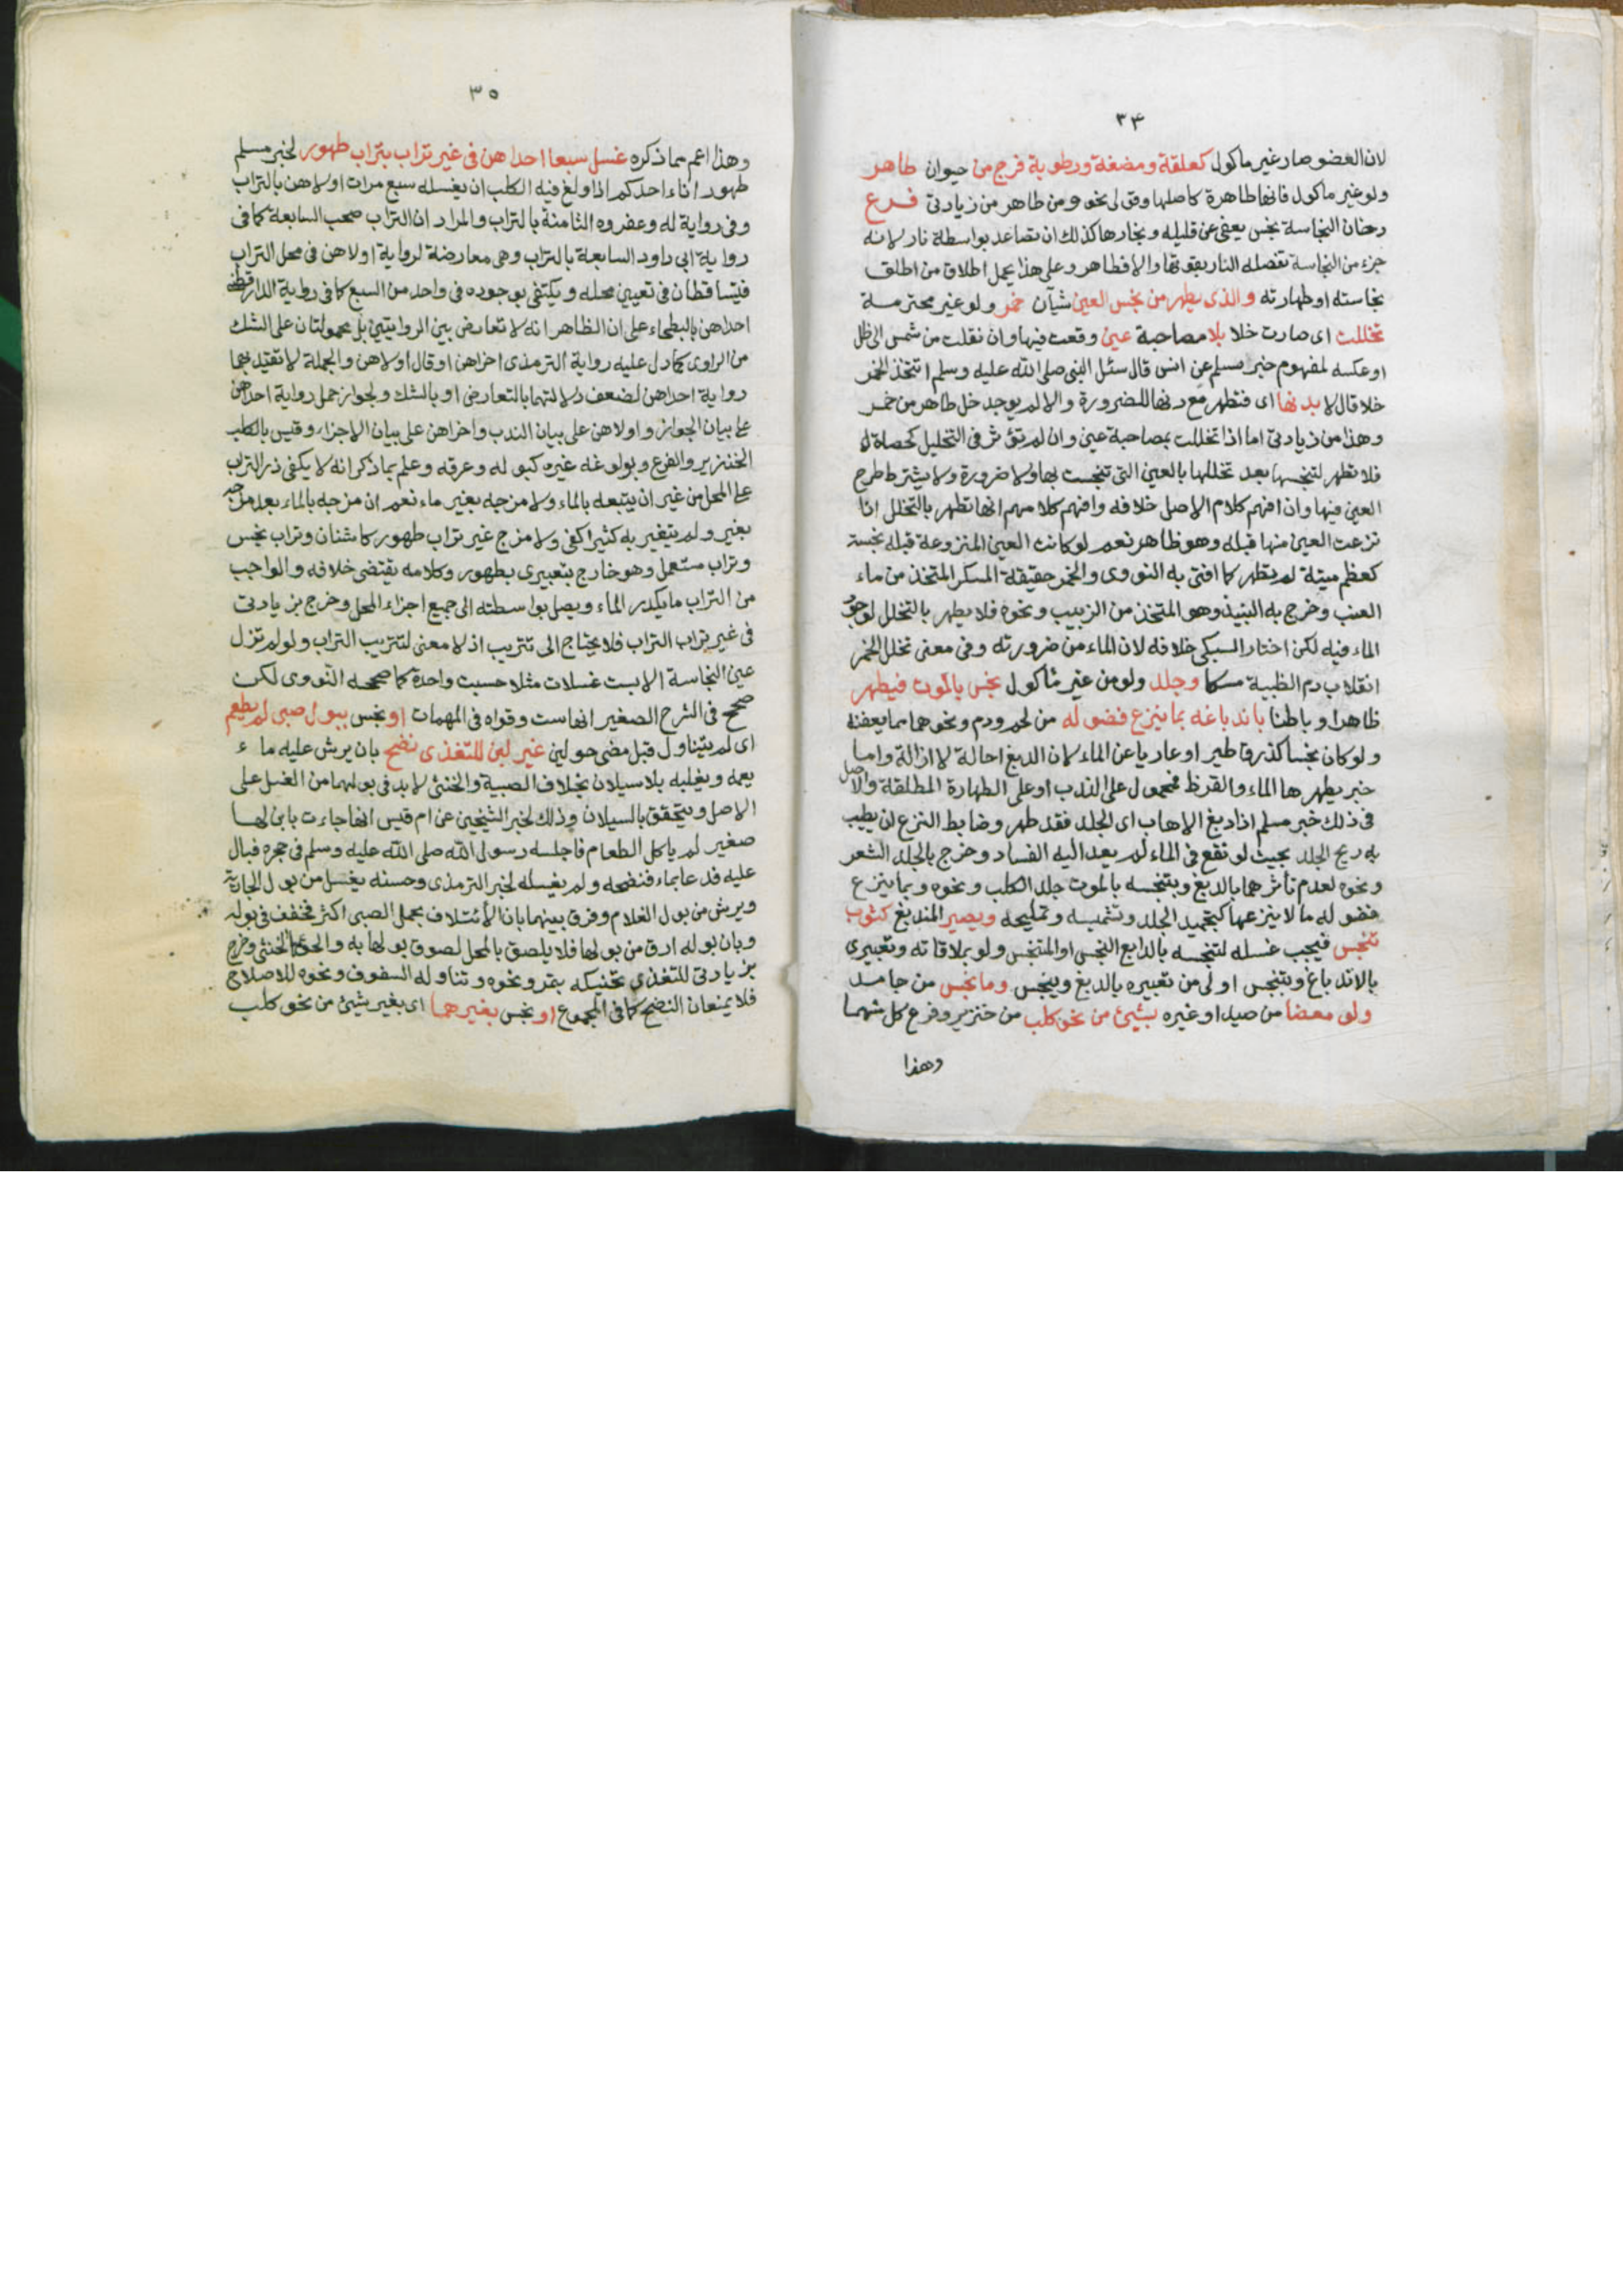 ٣٤
لان العضو صار غير ماكول كعلقة ومضغة ورطوبة فرج من حيوان طاهر
ولو غير ماكول فانها طاهرة كاصلها وقولى نحو ومن طاهر من زيادتى فرع
دخان النجاسة نجس يعفى عن قليله وبخارها كذلك ان تصاعد بواسطة نار لانه
جزء من النجاسة تفصله النار بقوتها والا فطاهر وعلى هذا يحمل اطلاق من اطلق
نجاسته او طهارته والذى يطهر من نجس العين شيآن خمر ولو غير محترمة
تخللت اى صارت خلا بلا مصاحبة عين وقعت فيها وان نقلت من شمس الى ظل
او عكسه لمفهوم خبر مسلم عن انس قال سئل النبى صلى الله عليه وسلم اتتخذ الخمر
خلا قال لا بدنها اى فتطهر مع دنها للضرورة والا لم يوجد خل طاهر من خمر
وهذا من زيادتى اما اذا تخللت بمصاحبة عين وان لم تؤثر فى التخليل كحصاة
فلا تطهر لتنجسها بعد تخللها بالعين التى تنجست بها ولا ضرورة ولا يشترط طرح
العين فيها وان افهم كلام الاصل خلافه وافهم كلامهم انها تطهر بالتخلل اذا
نزعت العين منها قبله وهو ظاهر نعم لو كانت العين المنزوعة قبله نجسة
كعظم ميتة لم يطهر كما افتى به النووى والخمر حقيقة المسكر المتخذ من ماء
العنب وخرج به النبيذ وهو المتخذ من الزبيب ونحوه فلا يطهر بالتخلل لوجود
الماء فيه لكن اختار السبكى خلافه لان الماء من ضرورته وفى معنى تخلل الخمر
انقلاب دم الظبية مسكا وجلد ولو من غير ماكول نجس بالموت فيطهر
ظاهرا وباطنا باندباغه بما ينزع فضوله من لحم ودم ونحوهما مما يعفنه
ولو كان نجسا كذرق طير او عاريا عن الماء لان الدبغ احالة لا ازالة واما
خبر يطهرها الماء والقرظ فمحمول على الندب او على الطهارة المطلقة والاصل
فى ذلك خبر مسلم اذا دبغ الاهاب اى الجلد فقد طهر وضابط النزع ان يطيب
به ريح الجلد بحيث لو نقع فى الماء لم يعد اليه الفساد وخرج بالجلد الشعر
ونحوه لعدم تأثرهما بالدبغ وبتنجسه بالموت جلد الكلب ونحوه وبما ينزع
فضوله ما لا ينزعها كتجميد الجلد وتشميسه وتمليحه ويصير المندبغ كثوب
تنجس فيجب غسله لتنجسه بالدابغ النجس او المتنجس ولو بملاقاته وتعبيرى
بالاندباغ وبتنجس اولى من تعبيره بالدبغ وينجس وما نجس من جامد
ولو معضا من صيد او غيره بشيئ من نحو كلب من خنزير وفرع كل منهما
وهذا
٣٥
وهذا اعم مما ذكره غسل سبعا احداهن فى غير تراب بتراب طهور لخبر مسلم
طهور اناء احدكم اذا ولغ فيه الكلب ان يغسله سبع مرات اولاهن بالتراب
وفى رواية له وعفروه الثامنة بالتراب والمراد ان التراب صحب السابعة كما فى
رواية ابى داود السابعة بالتراب وهى معارضة لرواية اولاهن فى محل التراب
فيتساقطان فى تعيين محله ويكتفى بوجوده فى واحد من السبع كما فى رواية الدارقطنى
احداهن بالبطحاء على ان الظاهر انه لا تعارض بين الروايتين بل محمولتان على الشك
من الراوى كما دل عليه رواية الترمذى اخراهن او قال اولاهن وبالجملة لا تقيد بهما
رواية احداهن لضعف دلالتهما بالتعارض او بالشك ولجواز حمل رواية احداهن
على بيان الجواز واولاهن على بيان الندب واخراهن على بيان الاجزاء وقيس بالكلب
الخنزير والفرع وبولوغه غيره كبوله وعرقه وعلم بما ذكر انه لا يكفى ذر التراب
على المحل من غير ان يتبعه بالماء ولا مزجه بغير ماء نعم ان مزجه بالماء بعد مزجه
بغير ولم يتغير به كثيرا كفى ولا مزج غير تراب طهور كاشنان وتراب نجس
وتراب مستعمل وهو خارج بتعبيرى بطهور وكلامه يقتضى خلافه والواجب
من التراب ما يكدر الماء ويصل بواسطته الى جميع اجزاء المحل وخرج بزيادتى
فى غير تراب التراب فلا يحتاج الى تتريب اذ لا معنى لتتريب التراب ولو لم تزل
عين النجاسة الا بست غسلات مثلا حسبت واحدة كما صححه النووى لكن
صحح فى الشرح الصغير انها ست وقواه فى المهمات او نجس ببول صبى لم يطعم
اى لم يتناول قبل مضى حولين غير لبن للتغذى نضح بان يرش عليه ماء
يعمه ويغلبه بلا سيلان بخلاف الصبية والخنثى لا بد فى بولهما من الغسل على
الاصل ويتحقق بالسيلان وذلك لخبر الشيخين عن ام قيس انها جاءت بابن لها
صغير لم ياكل الطعام فاجلسه رسول الله صلى الله عليه وسلم فى حجره فبال
عليه فدعا بماء فنضحه ولم يغسله لخبر الترمذى وحسنه يغسل من بول الجارية
ويرش من بول الغلام وفرق بينهما بان الائتلاف بحمل الصبى اكثر فخفف فى بوله
وبان بوله ارق من بولها فلا يلصق بالمحل لصوق بولها به والحق بها الخنثى وخرج
بزيادتى للتغذى تحنيكه بتمر ونحوه وتناوله السفوف ونحوه للاصلاح
فلا يمنعان النضح كما فى المجموع او نجس بغيرهما اى بغير شيئ من نحو كلب